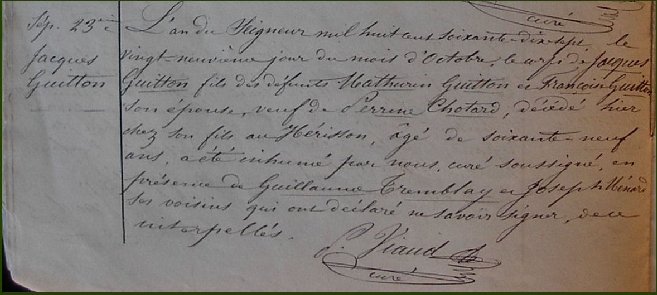 curé
Sép. 23ième
Jacques
Guitton
L'an du Seigneur mil huit cent soixante-dix-sept, le
vingt-neuvième jour du mois d'Octobre, le corps de Jacques
Guitton fils des défunts Mathurin Guitton et François Guitton
son épouse, veuf de Perrine Chotard, décédé hier
chez son fils au Hérisson, âgé de soixante-neuf
ans, a été inhumé par nous, curé soussigné, en
présence de Guillaume Tremblay et Joseph Ménard
ses voisins qui ont déclaré ne savoir signer, de ce
interpellés.
Viaud
curé